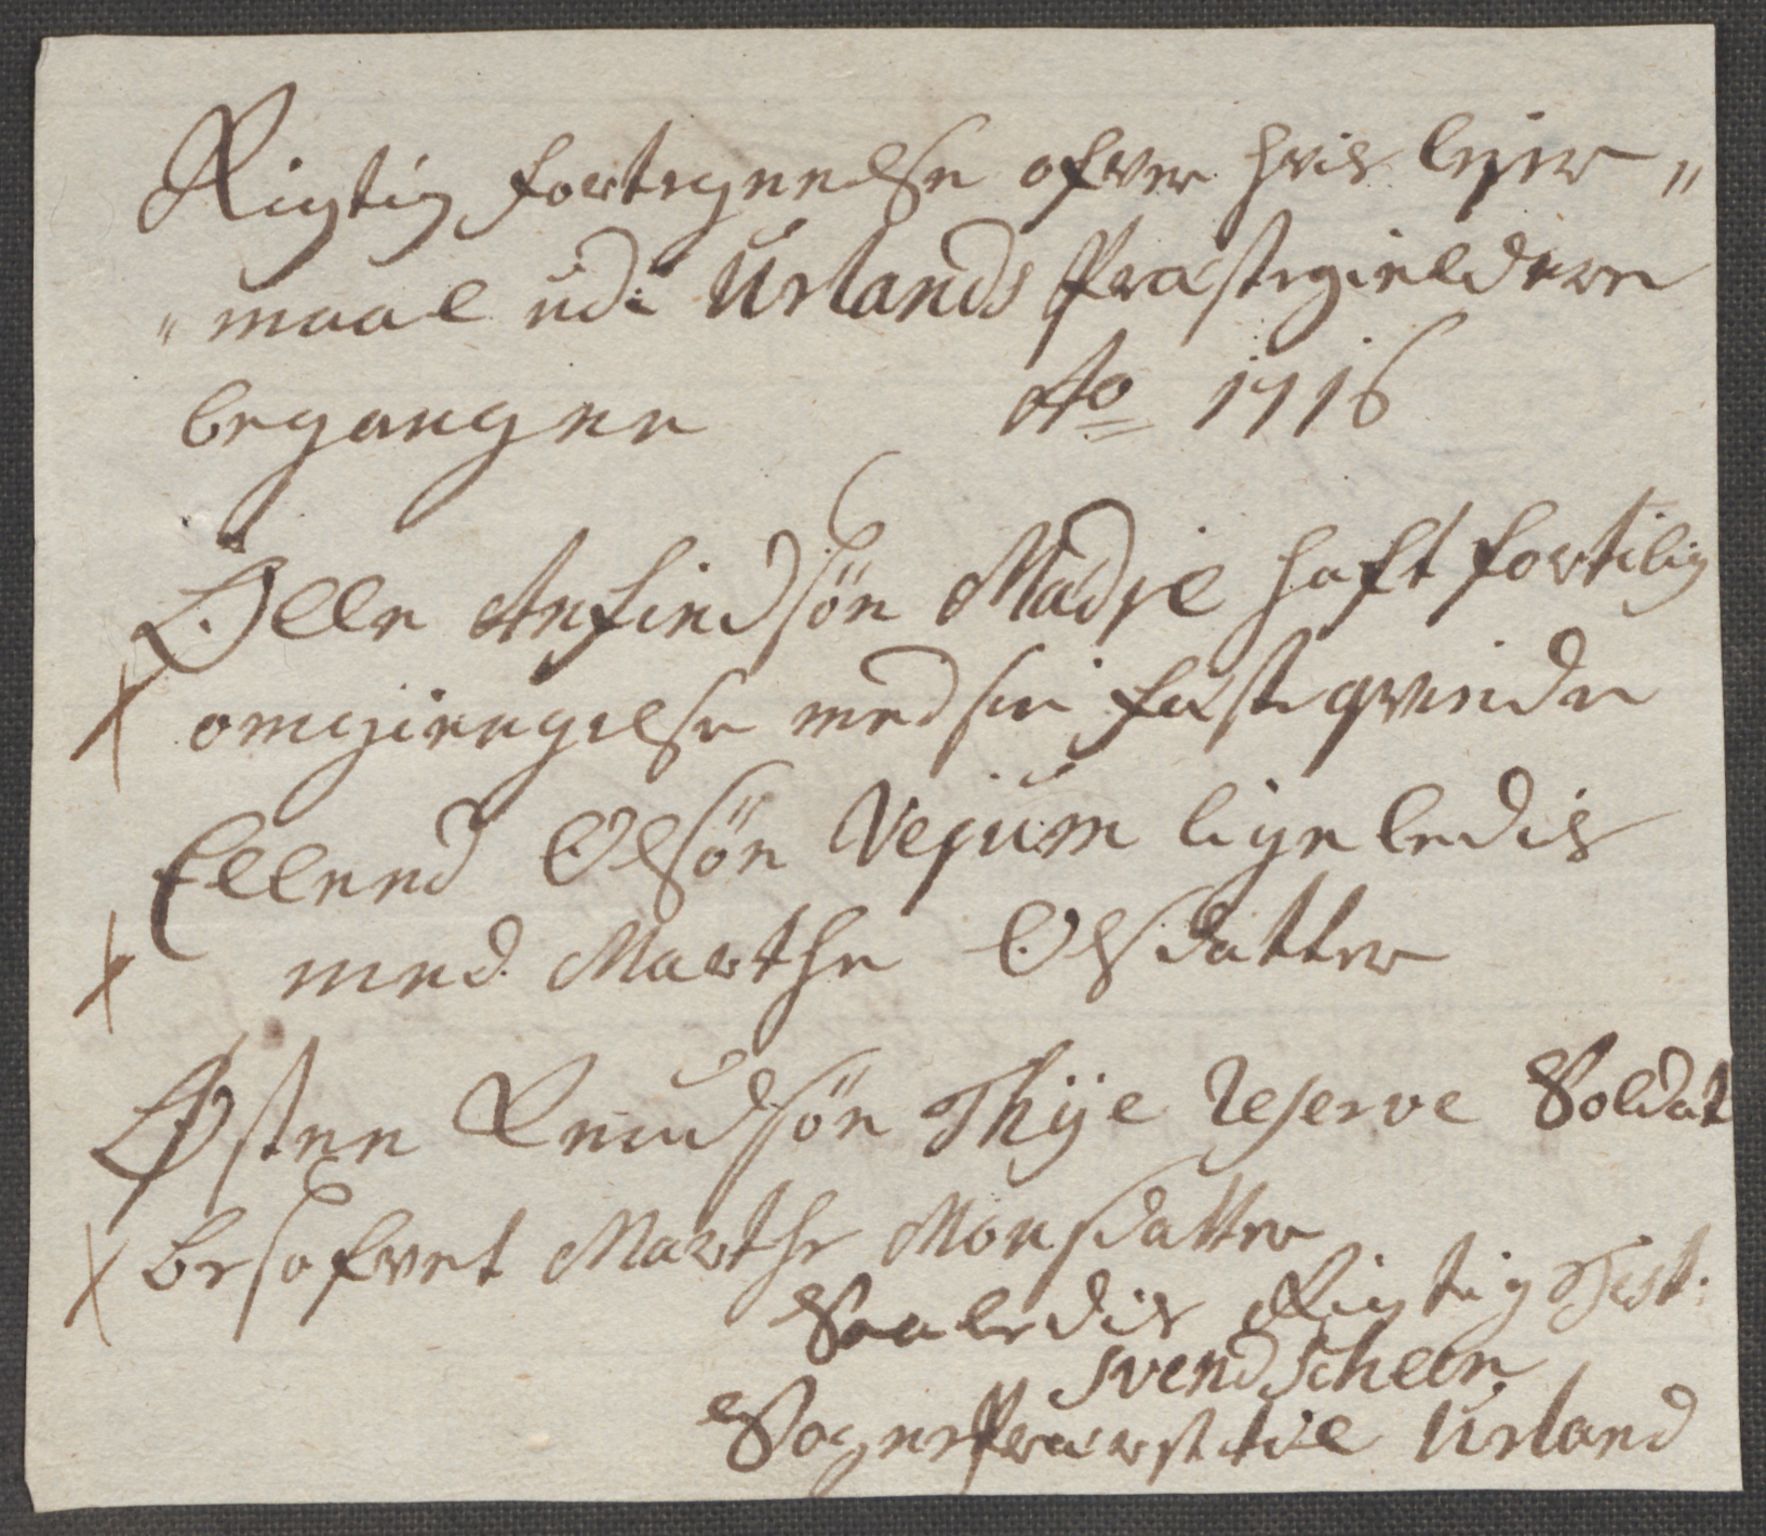 Rigtig fortegnelse ofver hvis lejer „
„ maal udi Urlands Præstegieldere
begangne Ao 1716
Olle Anfindsön Madje haft fortilig
omgiengelse med sin fæste qvinde
Ellend Olsön Vejum ligeledis
med Marthe Olsdatter
Østen Knudsön Thÿe Reserve Soldat
besofvet Marthe Monsdatter
Saaledis Rigtig Test.
Svend Scheen
Sogne Præst til Urland